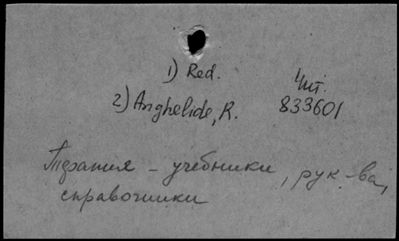 1) Red.
Чит.
2) Anghelide, R. 833601
Терапия - учебники, рук-ва,
справочники